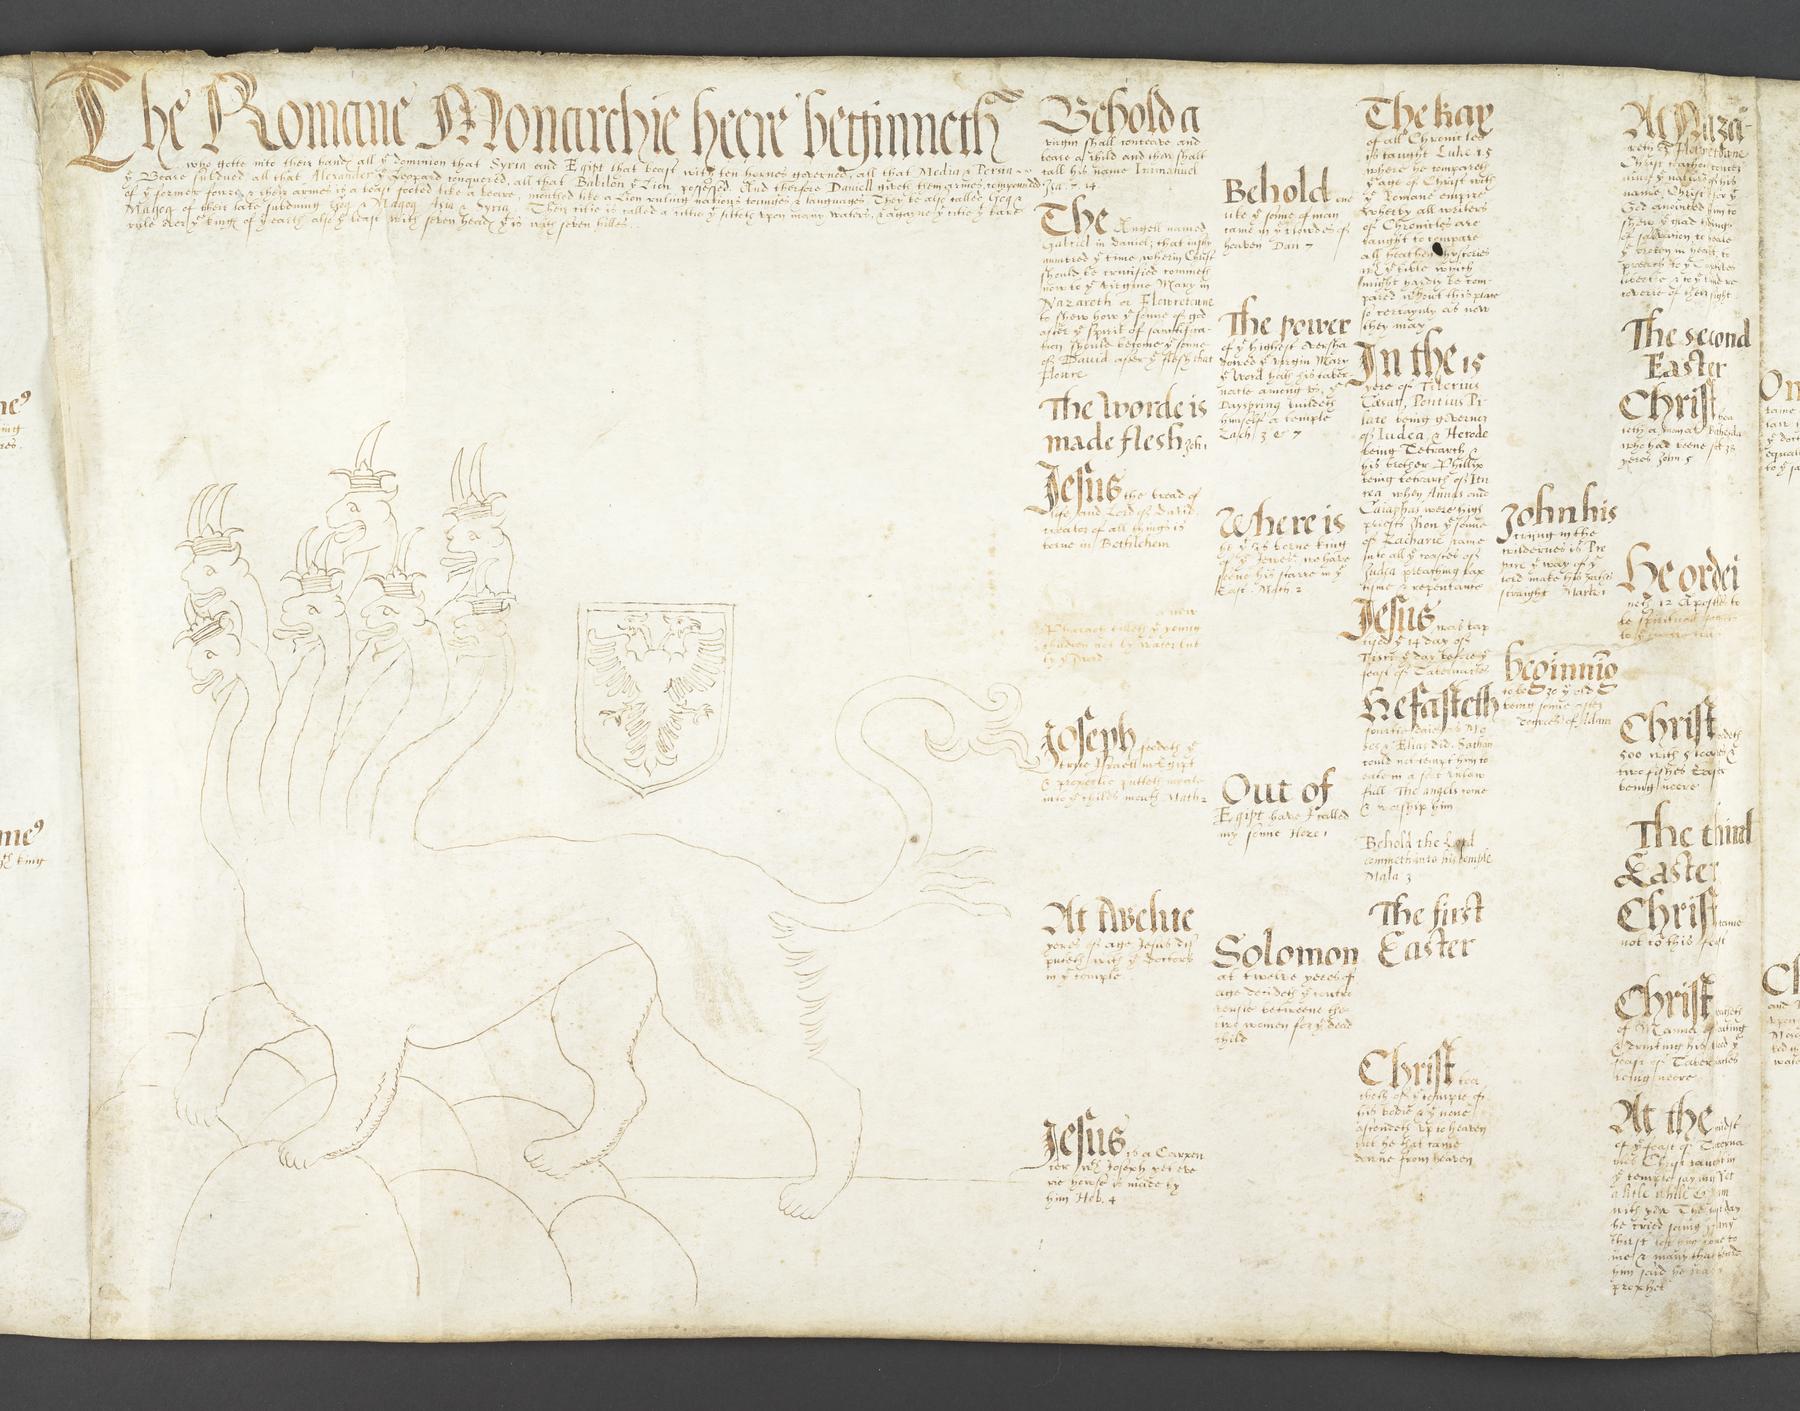 The Romane Monarchie heere beginneth
who gotte into their hands all ẏ dominion that Syria and Egipt that beast with ten hornes governed, all that Media & Persia
ẏ Beare subdued all that Alexander ẏ Leopard conquered, all that Babilon ẏ Lion possessed. And therefore Daniell giveth them armes, compounded
of ẏ former fowre, & their armes is a beast footed like a beare, mouthed like a Lion ruling nations tounges & languages. They be also called Gog &
Magog of their late subduing Gog & Magog Asia & Syria. Their citie is called a citie ẏ sitteth vpon many waters, & agayne ẏ citie ẏ bare
rule over ẏ kings of ẏ earth also ẏ beast with seven heads ẏ is with seven hilles.
Behold a
virgin shall conceave and
beare a child and thou shalt
call his name Immanuel
Isa. 7. 14.
The Angell named
Gabriel in Daniel, that
numbred ẏ time wherin Christ
should be crucified commeth
now to ẏ virgine Mary in
Nazareth or Flowretowne
to shew how ẏ sonne of god
after ẏ spirit of sanctifica-
tion should become ẏ sonne
of David after ẏ flesh that
flowre
The Worde is
made flesh John 1
Jesus the bread of
life and Lord of David
creator of all things is
borne in Bethlehem
a new
Pharaoh killeth ẏ young
children not by water but
by ẏ sword
Joseph feedeth ẏ
true Israell in Egipt
& properlie putteth meate
into ẏ childs mouth Math 2
At twelve
yeres of age Jesus dis
puteth with ẏ doctors
in ẏ temple
Jesus is a Carpen
ter wth Joseph yet eve
rie howse is made by
him Heb. 4
Behold one
like ẏ sonne of man
came in ẏ clowdes of
heaven Dan 7
The power
of ẏ highest oversha
dowed ẏ virgin Mary
ẏ Word hath his taber
nacle among vs, ẏ
Dayspring buildeth
himself a temple
Zach 3 & 7
Where is
he ẏ is borne king
of ẏ Jewes, we have
seene his starre in ẏ
East. Math. 2
Out of
Egipt have I called
my sonne Hose 1
Solomon
at twelve yeres of
age decideth ẏ contro
versie betweene the
two women for ẏ dead
child
The kay
of all Chronicles
is taught Luke 15
where he compareth
ẏ age of Christ with
ẏ Romane empire
wherby all writers
of Chronicles are
taught to compare
all heathen hystories
wth ẏ bible which
might hardly be com-
pared without this place
so certaynly as now
they may
In the 15
yere of Tiberius
Cæsar, Pontius Pi
late being governor
of Iudea, & Herode
being Tetrarch &
his brother Phillip
being tetrarch of Itu
rea, when Annas and
Caiaphas were high
priests Jhon ẏ sonne
of Zacharie came
into all ẏ coastes of
Judea preaching bap
tisme & repentance
Jesus was bap
tised ẏ 14 day of
Tisri ẏ day before ẏ
feast of Tabernacles
He fasteth
fourtie daies as Mo
ses & Elias did. Sathan
could not tempt him to
eate in a fast unlaw
full. The angels come
& worship him
Behold the Lord
commeth into his temple
Mala 3
The first
Easter
Christ tea
cheth of ẏ temple of
his bodie & ẏ none
ascendeth vp to heaven
but he that came
downe from heaven
John his
crying in the
wildernes is Pre
pare ẏ way of ẏ
lord make his pathes
straight Marke 1
beginnĩg
to be 30 ẏ old
being sonne after
degrees of Adam
At Naza-
reth
name, Christ for ẏ
God anointed him to
shew ẏ glad tidings
of salvation, to heale
ẏ broken in heart, to
preach to ẏ captives
libertie & to ẏ blind re
coverie of their sight.
The second
Easter
Christ hea
leth a man at Bethesda
who had beene sick 38
yeres John 5
He ordei
neth 12 Apostles to
be spirituall
Christ feedeth
500 with 5 loaves &
two fishes Easter
being neere
The third
Easter
Christ came
not to this feast
Christ
of Manna of eating
& drinking his blood ẏ
feast of Tabernacles
being neere
At the midst
of ẏ feast of Taberna
cles Christ taught in
ẏ temple saying Yet
a litle while I am
with you The last day
he cried saying if any
thirst let him come to
me & many that heard
him said he was a
prophet